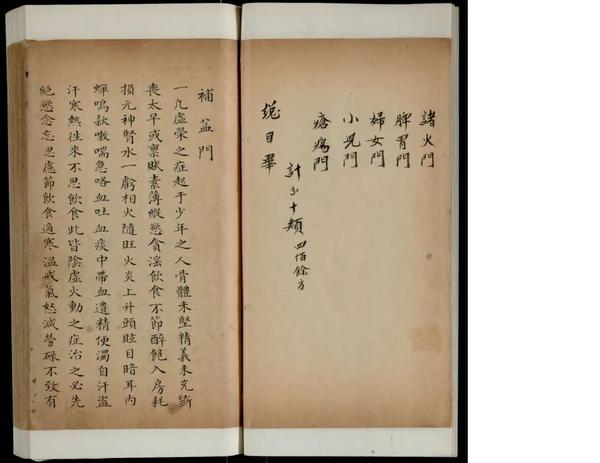 諸火門
脾胃門
婦女門
小児門
瘡瘍門
計 十類 四佰餘方
總目畢
補益門
一凡虛癆之症起于少年之人骨體未堅精義未充斲
喪太早或禀賦素薄縱慾貪淫飲食不節醉飽入房耗
損元神腎水一虧相火隨旺火炎上升頭眩目暗耳內
蟬鳴欬嗽喘急咯血吐血痰中帶血遺精便濁自汗盜
汗寒熱往來不思飲食此皆陰虛火動之症治之必先
絕慾念忘思慮節飲食適寒温戒氣怒減勞碌不致有